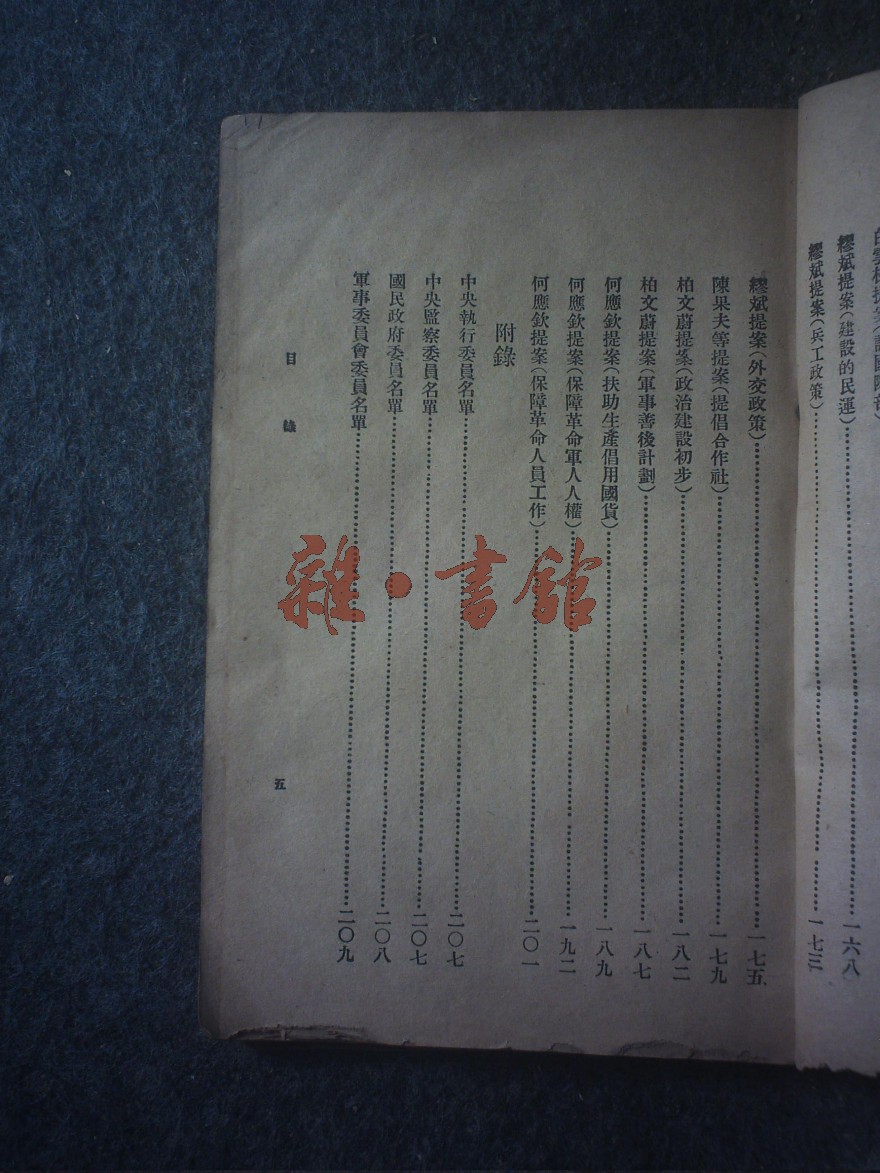 繆斌提案(建設的民運)……一六八
繆斌提案(兵工政策)……一七三
繆斌提案(外交政策)……一七五
陳果夫等提案(提倡合作社)……一七九
柏文蔚提案(政治建設初步)……一八二
柏文蔚提案(軍事善後計劃)……一八七
何應欽提案(扶助生產倡用國貨)……一八九
何應欽提案(保障革命軍人人權)……一九二
何應欽提案(保障革命人員工作)……二〇一
附錄
中央執行委員名單……二〇七
中央監察委員名單……二〇七
國民政府委員名單……二〇八
軍事委員會委員名單……二〇九
目錄
五
雜·書館